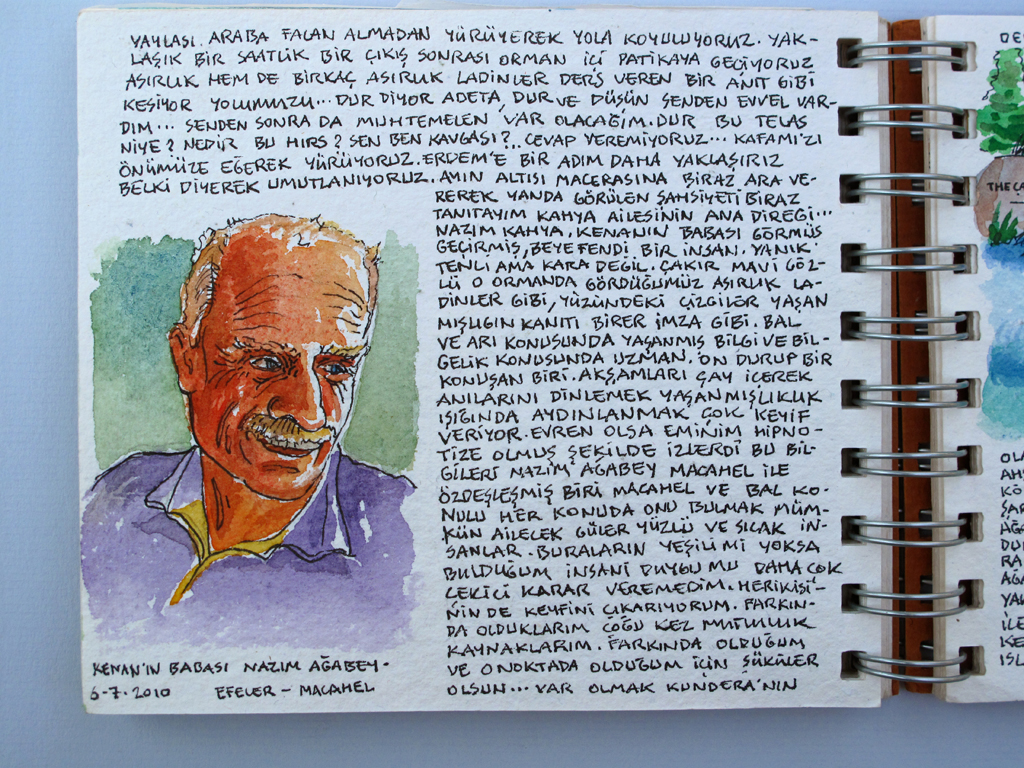 YAYLASI. ARABA FALAN ALMADAN YÜRÜYEREK YOLA KOYULUYORUZ. YAK-
LAŞIK BİR SAATLİK BİR ÇIKIŞ SONRASI ORMAN İÇİ PATİKAYA GEÇİYORUZ
ASIRLIK HEM DE BİRKAÇ ASIRLIK LADİNLER DERS VEREN BİR ANIT GİBİ
KESİYOR YOLUMUZU... DUR DİYOR ADETA, DUR VE DÜŞÜN SENDEN EVVEL VAR-
DIM... SENDEN SONRA DA MUHTEMELEN VAR OLACAĞIM. DUR BU TELAŞ
NİYE? NEDİR BU HIRS? SEN BEN KAVGASI?.. CEVAP VEREMİYORUZ... KAFAMIZI
ÖNÜMÜZE EĞEREK YÜRÜYORUZ. ERDEM'E BİR ADIM DAHA YAKLAŞIRIZ
BELKİ DİYEREK UMUTLANIYORUZ. AYIN ALTISI MACERASINA BİRAZ ARA VE-
REREK YANDA GÖRÜLEN ŞAHSİYETİ BİRAZ
TANITAYIM KAHYA AİLESİNİN ANA DİREĞİ...
NAZIM KAHYA. KENANIN BABASI GÖRMÜŞ
GEÇİRMİŞ, BEYEFENDİ BİR İNSAN. YANIK
TENLİ AMA KARA DEĞİL. ÇAKIR MAVİ GÖZ-
LÜ O ORMANDA GÖRDÜĞÜMÜZ ASIRLIK LA-
DİNLER GİBİ, YÜZÜNDEKİ ÇİZGİLER YAŞAN
MIŞLIĞIN KANITI BİRER İMZA GİBİ. BAL
VE ARI KONUSUNDA YAŞANMIŞ BİLGİ VE BİL-
GELİK KONUSUNDA UZMAN. ON DURUP BİR
KONUŞAN BİRİ. AKŞAMLARI ÇAY İÇEREK
ANILARINI DİNLEMEK YAŞANMIŞLIKLIK
IŞIĞINDA AYDINLANMAK ÇOK KEYİF
VERİYOR. EVREN OLSA EMİNİM HİPNO-
TİZE OLMUŞ ŞEKİLDE İZLERDİ BU BİL-
GİLERİ NAZIM AĞABEY MACAHEL İLE
ÖZDEŞLEŞMİŞ BİRİ MACAHEL VE BAL KO-
NULU HER KONUDA ONU BULMAK MÜM-
KÜN AİLECEK GÜLER YÜZLÜ VE SICAK İN-
SANLAR. BURALARIN YEŞİLİ Mİ YOKSA
BULDUĞUM İNSANİ DUYGU MU DAHA ÇOK
ÇEKİCİ KARAR VEREMEDİM. HERİKİSİ-
NİN DE KEYFİNİ ÇIKARIYORUM. FARKIN-
DA OLDUKLARIM ÇOĞU KEZ MUTLULUK
KAYNAKLARIM. FARKINDA OLDUĞUM
VE O NOKTADA OLDUĞUM İÇİN ŞÜKÜRLER
OLSUN... VAR OLMAK KUNDERA'NIN
KENAN'IN BABASI NAZIM AĞABEY.
6-7-2010 EFELER - MACAHEL
THE ÇA